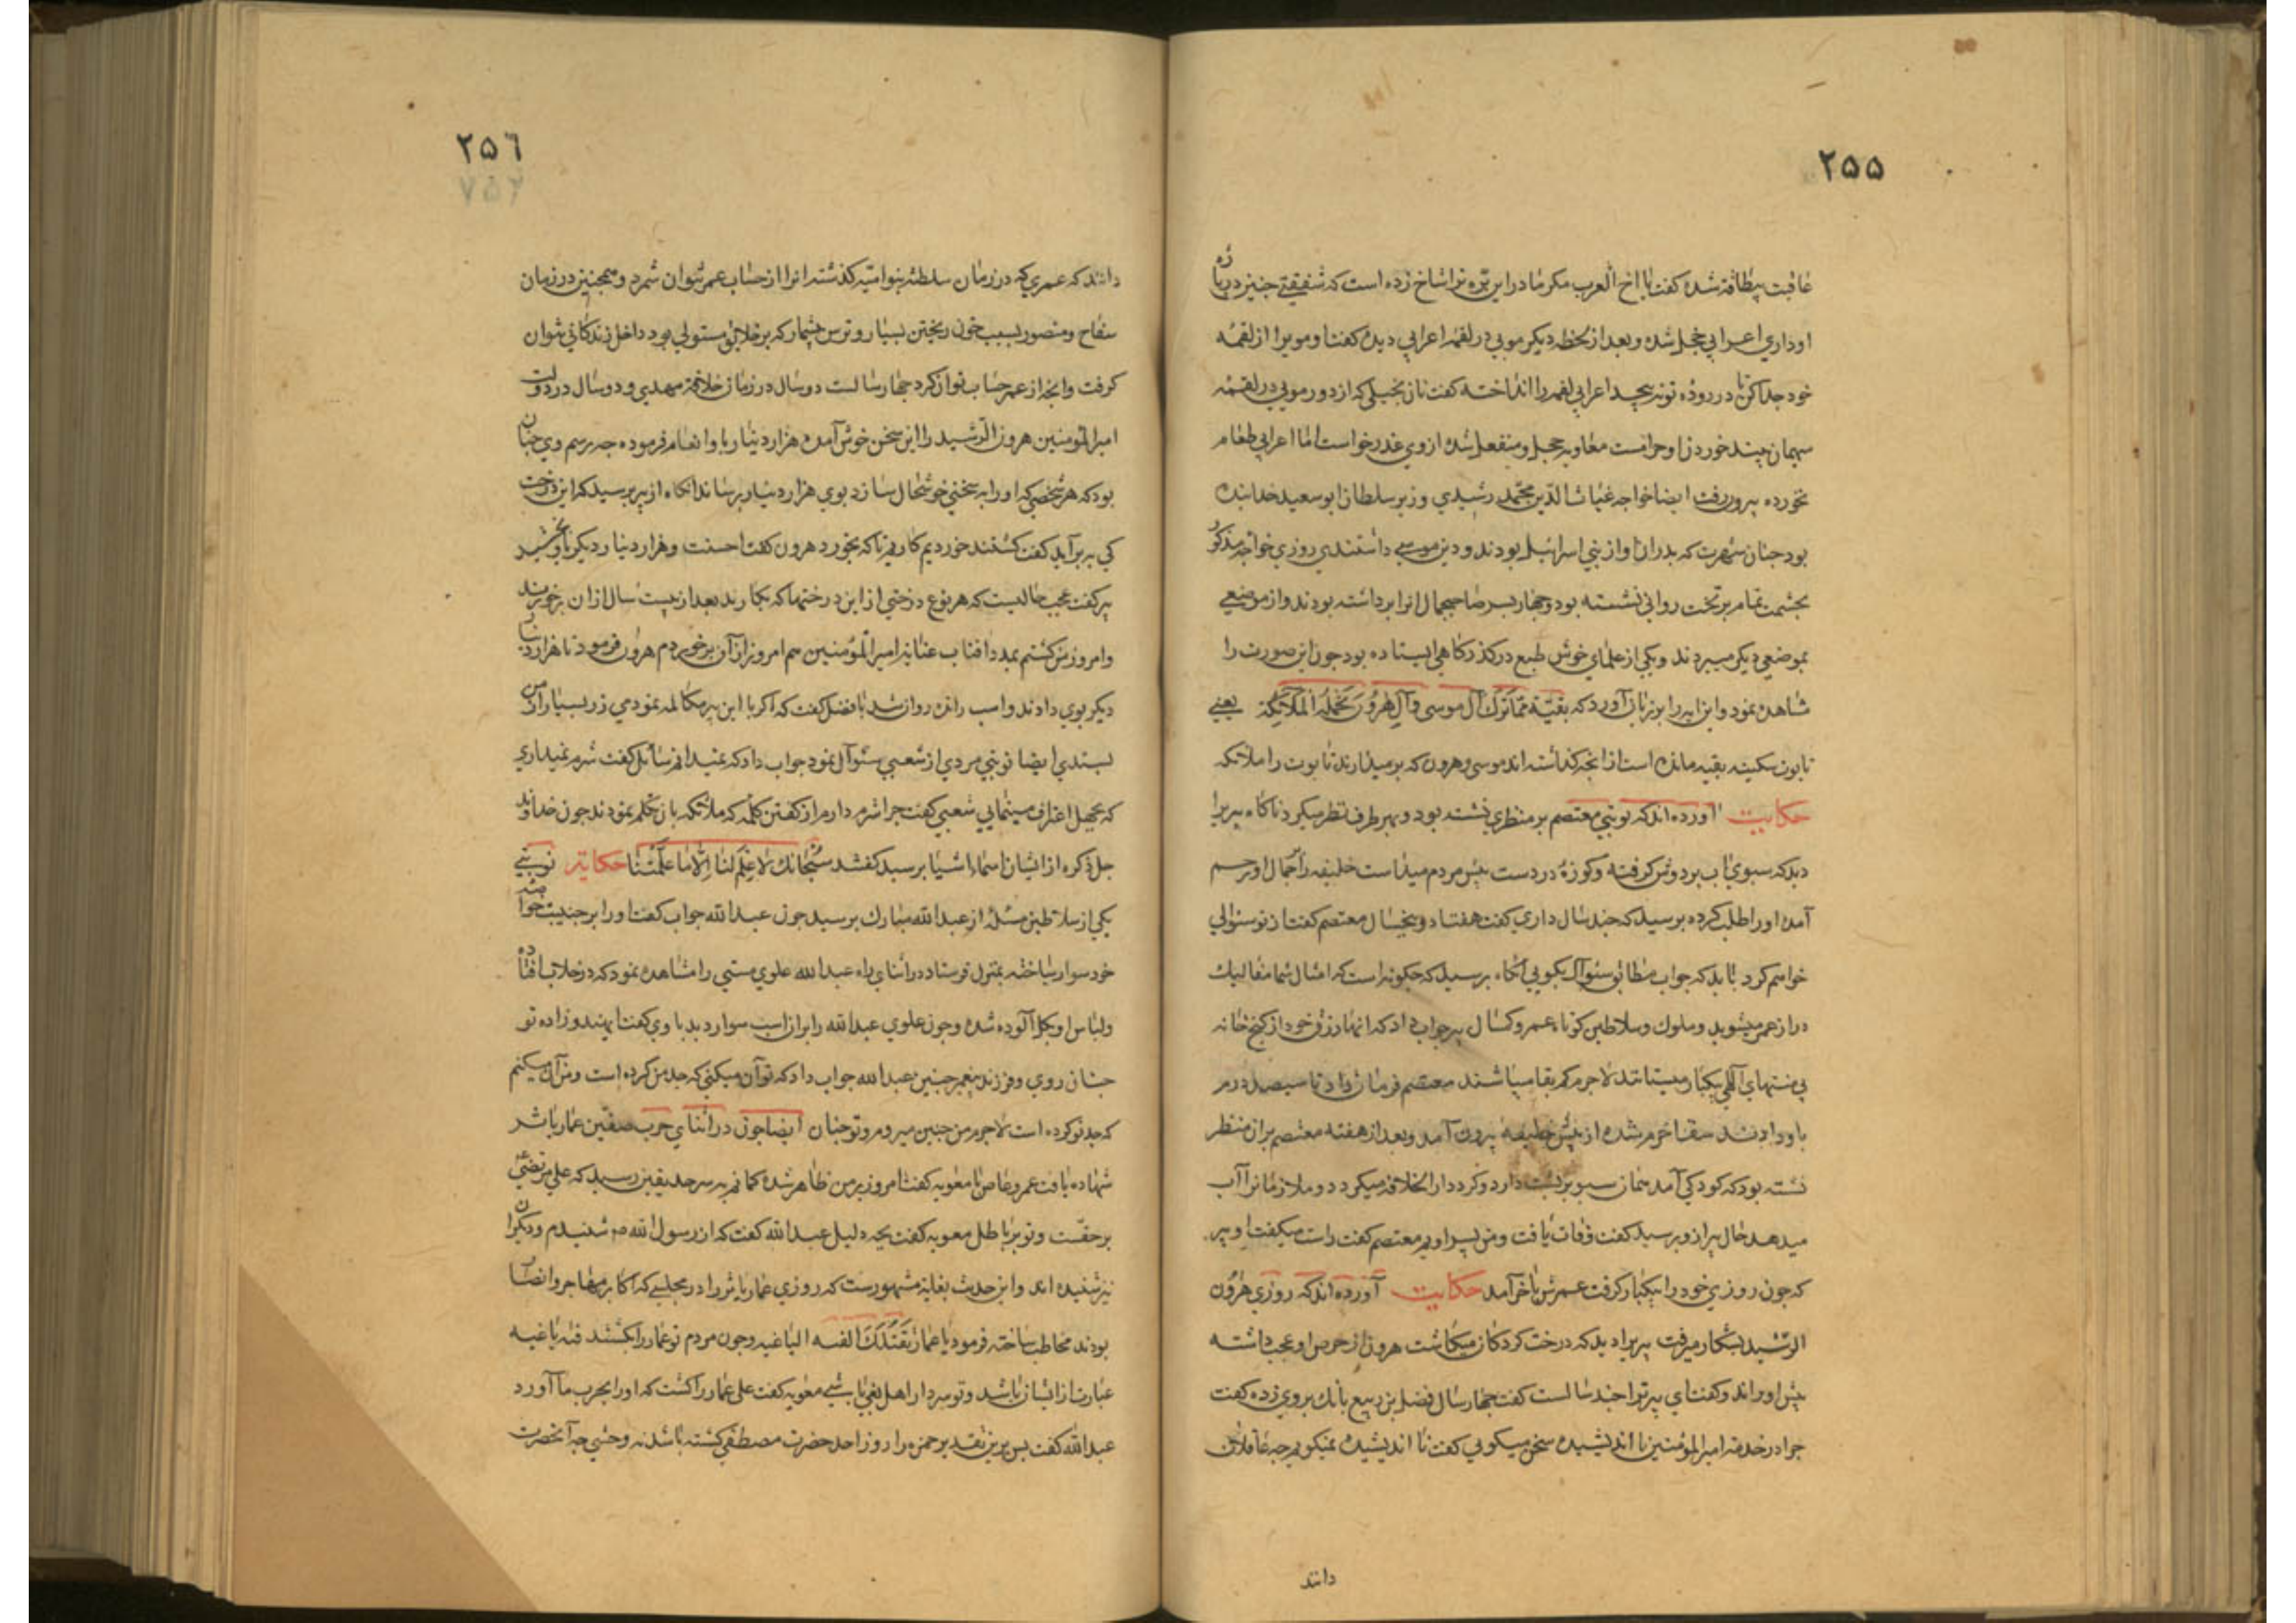 ۲۵۵
عاقبت بیطاقة شده کفت یا اخ العرب مکر مادر این بره ترا شاخ زده است که شفیقتی جنیز درباره
او داری اعرابی خجل شده و بعد از لحظه دیکر مویی در لقمه اعرابی دیده کفت او مویرا از لقمه
خود جدا کن تا در روده تو نپیجد اعرابی لقمه را انداخته کفت نان بخیلی که از دور مویی در لقمه
میهمان بیند خوردن او حرامست معاویه خجل و منفعل شده از وی عذر خواست اما اعرابی طعام
نخورده بیرون رفت ایضا خواجه غیاث الدین محمد رشیدی وزیر سلطان ابو سعید خدابنده
بود جنان شهرت که بدران او از بنی اسرائیل بودند و دین موسی داشتندی روزی خواجه مذکور
بحشمت تمام بر تخت روانی نشسته بود و جهار بسر صاحبجمال انرا برداشته بودند و از موضعی
بموضعی دیکر میبردند و یکی از علمای خوش طبع در کذرکاهی ایستاده بود جون این صورت را
شاهده نمود و این ایه را بر زبان آورد که بقیّة ممّا ترک آل موسی و آل هرون تحمله الملائکة یعنی
تابوت سکینه بقیه مانده است از انجه کذاشته اند موسی و هرون که برمیدارند تابوت را ملائکه
حکایت آورده اند که نوبتی معتصم بر منظری نشسته بود و بهر طرف نظر میکرد ناکاه پیریرا
دید که سبوی آب بر دوش کرفته و کوزهٔ در دست بیش مردم میداست خلیفه را بحال او رحم
آمده او را طلب کرده برسید که جند سال داری کفت هفتاد و بنجسال معتصم کفت از تو سئوالی
خواهم کرد باید که جواب مطابق سئوال بکویی آنکاه برسید که جکونه است که امثال شما مفالیک
دراز عمر میشوید و ملوک و سلاطین کوتاه عمر و کسال پیر جواب داد که انها رزق خود از کنج خانه
بی منتهای آلهی بیکبار میستانند لاجرم کم بقا میباشند معتصم فرمان داد تا سیصد درم
باو دادند سقا خرم شده از بیش خلیفه بیرون آمد و بعد از هفته معتصم بران منظر
نشسته بود که کودکی آمد همان سبو بر بشت دارد و کرد دار الخلافه میکردد و ملازمانرا آب
میدهد حال پیر ازو برسید کفت وفات یافت و من بسر اویم معتصم کفت راست میکفت او پیر
که جون روزی خود را بیکبار کرفت عمرش باخر آمد حکایت آورده اند که روزی هرون
الرشید بشکار میرفت پیریرا دید که درخت کردکان میکاشت هرون از حرص او عجب داشته
بیش او راند و کفت ای پیر ترا جند سالست کفت جهار سال فضل بن ربیع بانک بر وی زده کفت
جرا در خدمة امیر المؤمنین نا اندیشیده سخن میکویی کفت نا اندیشیده نمیکویم جه عاقلان
دانند
۲۵۶
دانند که عمری که در زمان سلطنة بنو امیّه کذشته انرا از حساب عمر نتوان شمرد و همجنین در زمان
سفاح و منصور بسبب خون ریختن بسیار و ترس بیشمار که بر خلایق مستولی بود داخل زندکانی نتوان
کرفت و انجه از عمر حساب توان کرد جهار سالست دو سال در زمان خلافة مهدی و دو سال در دولت
امیر المؤمنین هرون الرشید را این سخن خوش آمده هزار دینار باو انعام فرموده جه رسم وی جنان
بود که هر شخصی که او را به سخنی خوشحال سازد بوی هزار دینار برساند آنکاه از پیر برسید که این درخت
کی به بر آید کفت کشتند خوردیم کاریم تا که بخورد هرون کفت احسنت و هزار دینار دیکر باو بخشید
پیر کفت عجب حالیست که هر نوع درختی از این درختها که بکارند بعد از بیست سال از ان بر خورند
و امروز من کشتم بمدد آفتاب عنایة امیر المؤمنین هم امروز از آن بر خوردم هرون فرمود تا هزار دینار
دیکر بوی دادند و اسب رانده روان شد با فضل کفت که اکر با این پیر مکالمه نمودمی زر بسیار از من
بستدی ایضا نوبتی مردی از شعبی سئوال نمود جواب داد که نمیدانم سائل کفت شرم نمیداری
که بجهل اعتراف مینمایی شعبی کفت جرا شرم دارم از کفتن کلمه که ملائکه بان تکلم نمودند جون خداوند
جل ذکره از ایشان اسماء اشیا برسید کفتند سبحانک لا علم لنا الّا ما علّمتنا حکایة نوبتی
یکی از سلاطین مسئلهٔ از عبد الله مبارک برسید جون عبد الله جواب کفت او را بر جنیبت خاصه
خود سوار ساخته بمنزل فرستاد در اثنای راه عبد الله علوی مستی را مشاهده نمود که در خلاب افتاده
و لباس او بکل آلوده شده و جون علوی عبد الله را بران اسب سوار دید با وی کفت ای هندو زاده تو
جنان روی و فرزند بیغمبر جنین عبد الله جواب داد که تو آن میکنی که جد من کرده است و من آن میکنم
که جد تو کرده است لاجرم من جنین میروم و تو جنان ایضا جون در اثنای حرب صفین عمار یاسر
شهاده یافت عمرو عاص با معویه کفت امروز بر من ظاهر شد و کمانم به سرحد یقین رسید که علی مرتضی
بر حقست و تو بر باطل معویه کفت بجه دلیل عبد الله کفت که از رسول الله شنیدم و دیکران
نیز شنیده اند و این حدیث بغایة مشهورست که روزی عمار یاسر را در مجلسی که اکابر مهاجر و انصار
بودند مخاطب ساخته فرمود یا عمار تقتلک الفئه الباغیه و جون مردم تو عمار را بکشتند فئه باغیه
عبارت از ایشان باشد و تو سردار اهل بغی باشی معویه کفت علی عمار را کشت که او را بحرب ما آورد
عبد الله کفت بس برین تقدیر حمزه را روز احد حضرت مصطفی کشته باشد نه وحشی جه آنحضرت